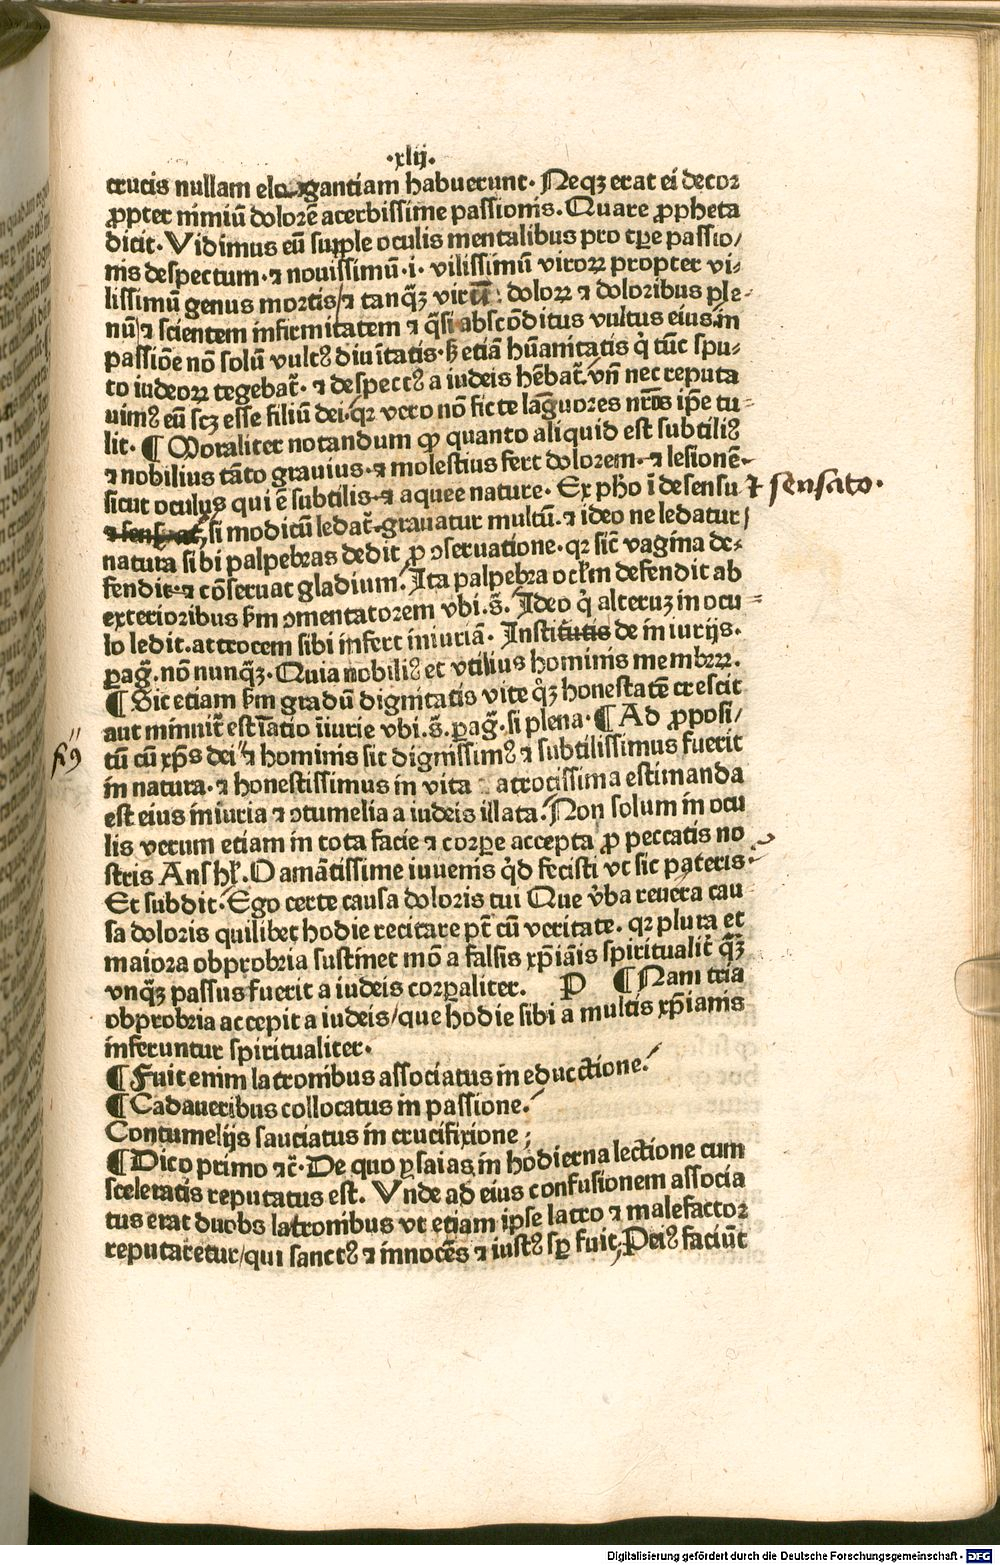 ·xlij·
crucis nullam elo gantiam habuerunt· Neqꝫ erat ei decor
ꝓpter nimiū dolorē acerbissime passionis. Quare ꝓpheta
dicit· Vidimus eū supple oculis mentalibus pro tꝑe passio/
nis despectum·⁊ nouissimū·i· vilissimū viroꝝ propter vi⸗
lissimū genus mortis/⁊ tanq̄ꝫ virū: doloꝝ ⁊ doloribus ple⸗
nū/⁊ scientem infirmitatem ⁊ q̄si abscōditus vultus eius.in
passiōe nō solū vultꝰ diuītatis·sꝫ etiā hūanitatis q̇ tūc spu⸗
to iudeoꝝ tegebat̄· ⁊ despectꝰ a iudeis hēbat̄.vn̄ nec reputa
uimꝰ eū scꝫ esse filiū dei·qꝛ vero nō ficte lāguores nr̄os ip̄e tu⸗
lit· ¶ Moraliter notandum ꝙ quanto aliquid est subtiliꝰ
⁊ nobilius tāto grauius·⁊ molestius fert dolorem·⁊ lesionē⸗
sicut oculus qui ē subtilis·⁊ aquee nature· Ex pho ī de sensu ⁊ sensato·
si modicū ledat̄·grauatur multū·⁊ ideo ne ledatur/
natura sibi palpebras dedit ꝓ ↄseruatione·qꝛ sic̄ vagina de⸗
fendit·⁊ cōseruat gladium. Ita palpebra oclm̄ defendit ab
exterioribus sm̄ ↄmentatorem vbi.s̄. Ideo q̇ alteruꝫ in ocu⸗
lo ledit.attrocem sibi infert iniuriā· Institutis de iniurijs·
ꝑaḡ.nō nunq̄ꝫ· Quia nobiliꝰ et vtilius hominis membꝝ.
¶ Sic etiam sm̄ gradū dignitatis vite q̊ꝫ honestatē crescit
aut minuit̄ estīatio īiurie vbi.s̄.ꝑaḡ·si plena·¶ Ad ꝓposi/
tū cū xp̄s dei ⁊ hominis sic dignissimꝰ ⁊ subtilissimus fuerit
in natura·⁊ honestissimus in vita atrocissima estimanda
est eius iniuria ⁊ ↄtumelia a iudeis illata. Non solum in ocu
lis verum etiam in tota facie ⁊ corꝑe accepta ꝓ peccatis no
stris Anshꝉ·O amātissime iuuenis q̇d fecisti vt sic pateris·
Et subdit· Ego certe causa doloris tui Que v̄ba reuera cau⸗
sa doloris quilibet hodie recitare pt̄ cū veritate· qꝛ plura et
maiora obprobria sustinet mō a falsis xp̄iāis spiritualit̄ q̄ꝫ
vnq̄ꝫ passus fuerit a iudeis corꝑaliter. P ¶ Nam tria
obprobria accepit a iudeis/que hodie sibi a multis xp̄ianis
inferuntur spiritualiter·
¶ Fuit enim latronibus associatus in eductione!
¶ Cadaueribus collocatus in passione.
Contumelijs sauciatus in crucifixione;
¶ Dico primo ⁊c̄· De quo ysaias in hodierna lectione cum
sceleratis reputatus est. Vnde ad eius confusionem associa
tus erat duobs latronibus vt etiam ipse latro ⁊ malefactor
reputaretur/qui sanctꝰ ⁊ innocēs ⁊ iustꝰ sꝑ fuit, Peiꝰ faciūt
Digitalisierung gefördert durch die Deutsche Forschungsgemeinschaft · DFG